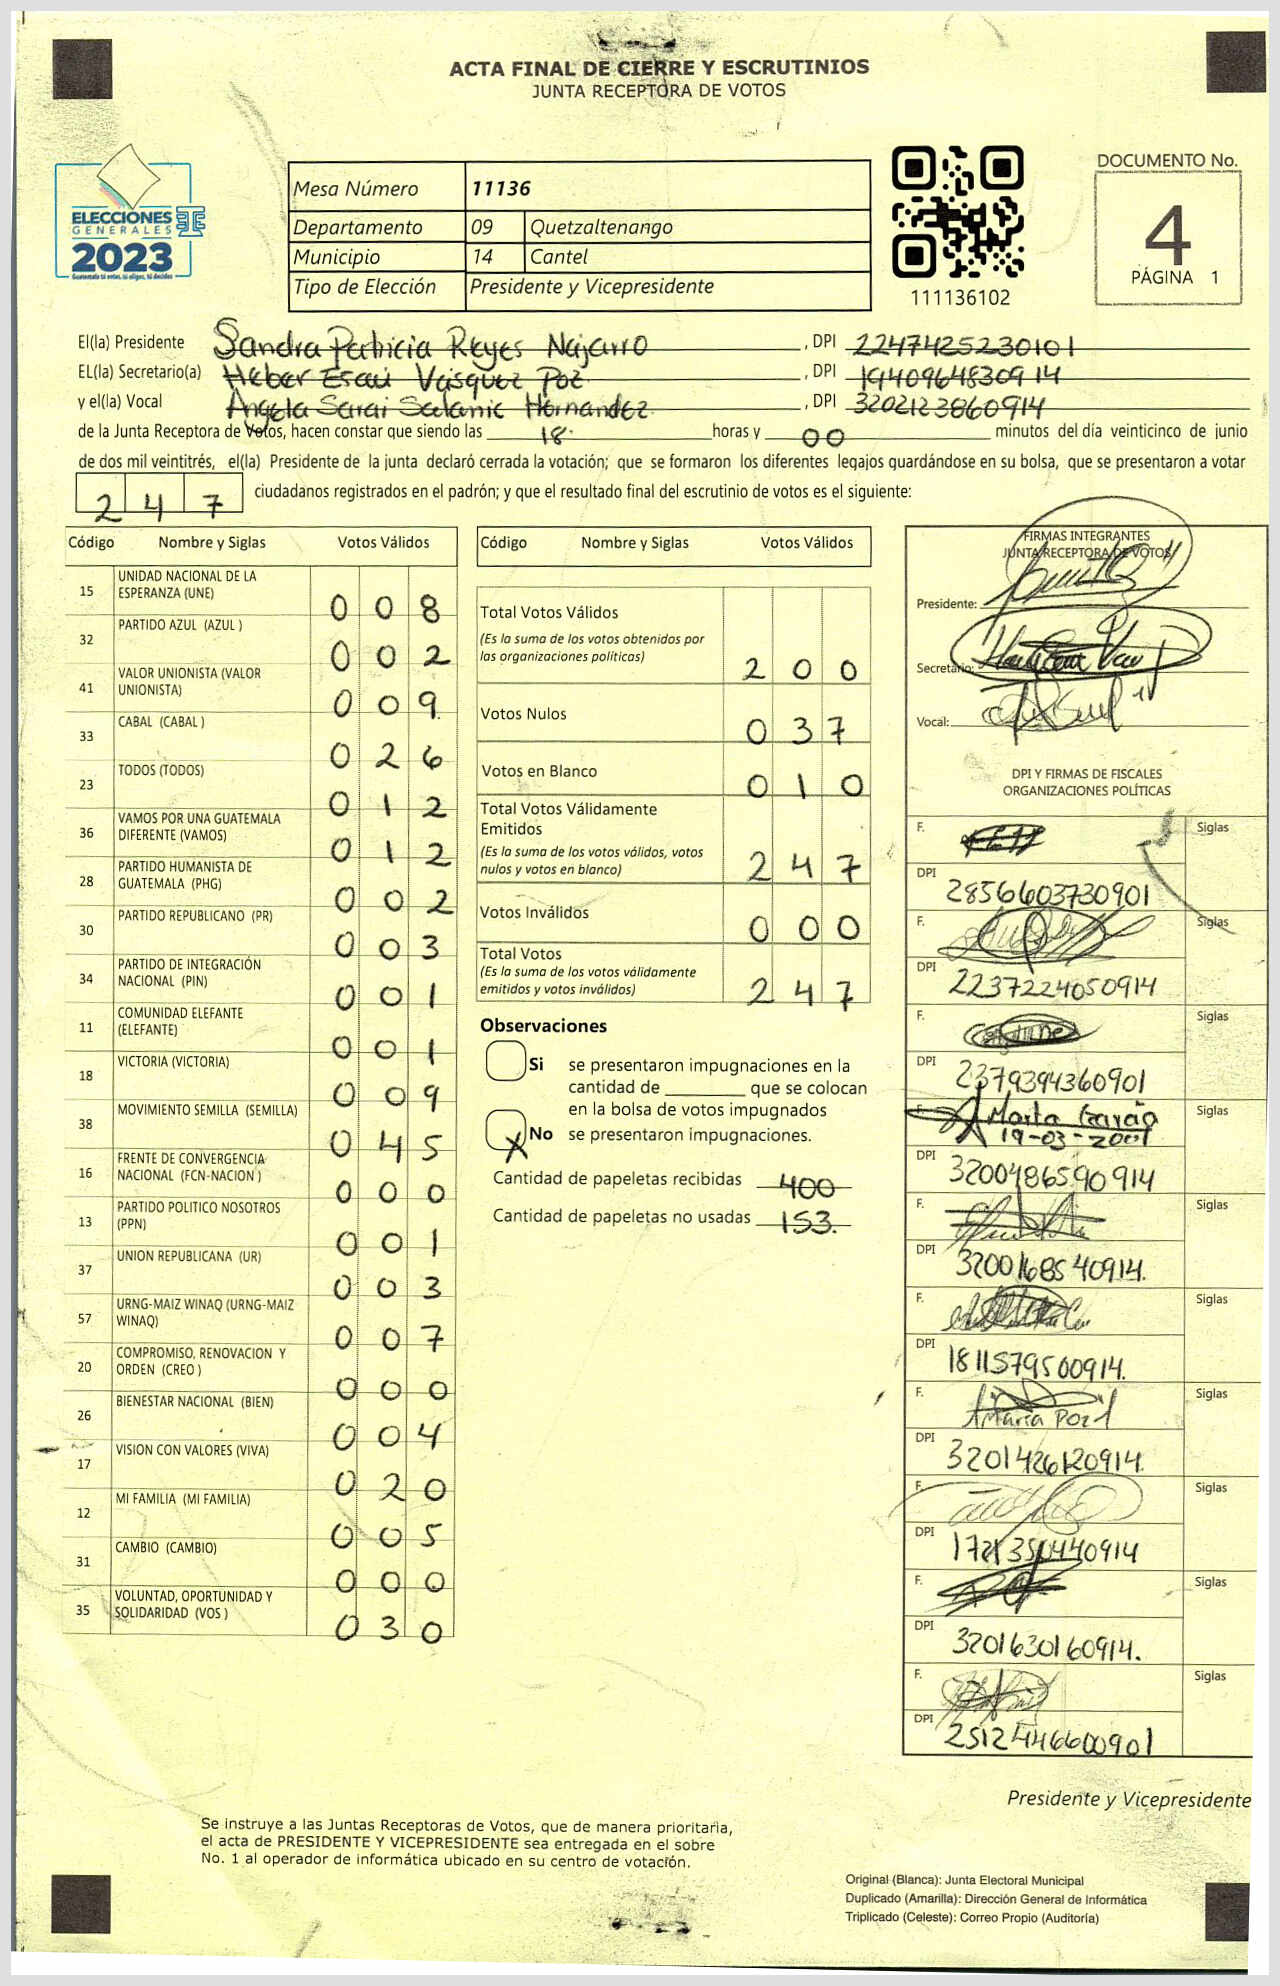 ACTA FINAL DE CIERRE Y ESCRUTINIOS
JUNTA RECEPTORA DE VOTOS
ELECCIONES
GENERALES
2023
Guatemala tú votas, tú eliges, tú decides
Mesa Número 11136
Departamento 09 Quetzaltenango
Municipio 14 Cantel
Tipo de Elección Presidente y Vicepresidente
111136102
DOCUMENTO No.
4
PÁGINA 1
El(la) Presidente Sandra Patricia Reyes Najarro , DPI 2247425230101
EL(la) Secretario(a) Heber Esaú Vásquez Poz , DPI 1940964830914
y el(la) Vocal Angela Sarai Salanic Hernandez , DPI 3202123860914
de la Junta Receptora de Votos, hacen constar que siendo las 18 horas y 00 minutos del día veinticinco de junio
de dos mil veintitrés, el(la) Presidente de la junta declaró cerrada la votación; que se formaron los diferentes legajos guardándose en su bolsa, que se presentaron a votar
247 ciudadanos registrados en el padrón; y que el resultado final del escrutinio de votos es el siguiente:
Código Nombre y Siglas Votos Válidos
15 UNIDAD NACIONAL DE LA ESPERANZA (UNE) 008
32 PARTIDO AZUL (AZUL ) 002
41 VALOR UNIONISTA (VALOR UNIONISTA) 009
33 CABAL (CABAL ) 026
23 TODOS (TODOS) 012
36 VAMOS POR UNA GUATEMALA DIFERENTE (VAMOS) 012
28 PARTIDO HUMANISTA DE GUATEMALA (PHG) 002
30 PARTIDO REPUBLICANO (PR) 003
34 PARTIDO DE INTEGRACIÓN NACIONAL (PIN) 001
11 COMUNIDAD ELEFANTE (ELEFANTE) 001
18 VICTORIA (VICTORIA) 009
38 MOVIMIENTO SEMILLA (SEMILLA) 045
16 FRENTE DE CONVERGENCIA NACIONAL (FCN-NACION ) 000
13 PARTIDO POLITICO NOSOTROS (PPN) 001
37 UNION REPUBLICANA (UR) 003
57 URNG-MAIZ WINAQ (URNG-MAIZ WINAQ) 007
20 COMPROMISO, RENOVACION Y ORDEN (CREO ) 000
26 BIENESTAR NACIONAL (BIEN) 004
17 VISION CON VALORES (VIVA) 020
12 MI FAMILIA (MI FAMILIA) 005
31 CAMBIO (CAMBIO) 000
35 VOLUNTAD, OPORTUNIDAD Y SOLIDARIDAD (VOS ) 030
Código Nombre y Siglas Votos Válidos
Total Votos Válidos
(Es la suma de los votos obtenidos por
las organizaciones políticas) 200
Votos Nulos 037
Votos en Blanco 010
Total Votos Válidamente
Emitidos
(Es la suma de los votos válidos, votos
nulos y votos en blanco) 247
Votos Inválidos 000
Total Votos
(Es la suma de los votos válidamente
emitidos y votos inválidos) 247
Observaciones
Si se presentaron impugnaciones en la
cantidad de ________ que se colocan
en la bolsa de votos impugnados
X No se presentaron impugnaciones.
Cantidad de papeletas recibidas 400
Cantidad de papeletas no usadas 153.
FIRMAS INTEGRANTES
JUNTA RECEPTORA DE VOTOS
Presidente:
Secretario:
Vocal:
DPI Y FIRMAS DE FISCALES
ORGANIZACIONES POLÍTICAS
F. Siglas
DPI 2856603730901
F. Siglas
DPI 2237224050914
F. Siglas
DPI 2379394360901
F. Marta Siglas
19-03-2001
DPI 3200486590914
F. Siglas
DPI 3200168540914.
F. Siglas
DPI 1811579500914.
F. Maria Poz Siglas
DPI 3201426120914.
F. Siglas
DPI
F. Siglas
DPI 3201630160914.
F. Siglas
DPI 2512446600901
Presidente y Vicepresidente
Se instruye a las Juntas Receptoras de Votos, que de manera prioritaria,
el acta de PRESIDENTE Y VICEPRESIDENTE sea entregada en el sobre
No. 1 al operador de informática ubicado en su centro de votación.
Original (Blanca): Junta Electoral Municipal
Duplicado (Amarilla): Dirección General de Informática
Triplicado (Celeste): Correo Propio (Auditoría)